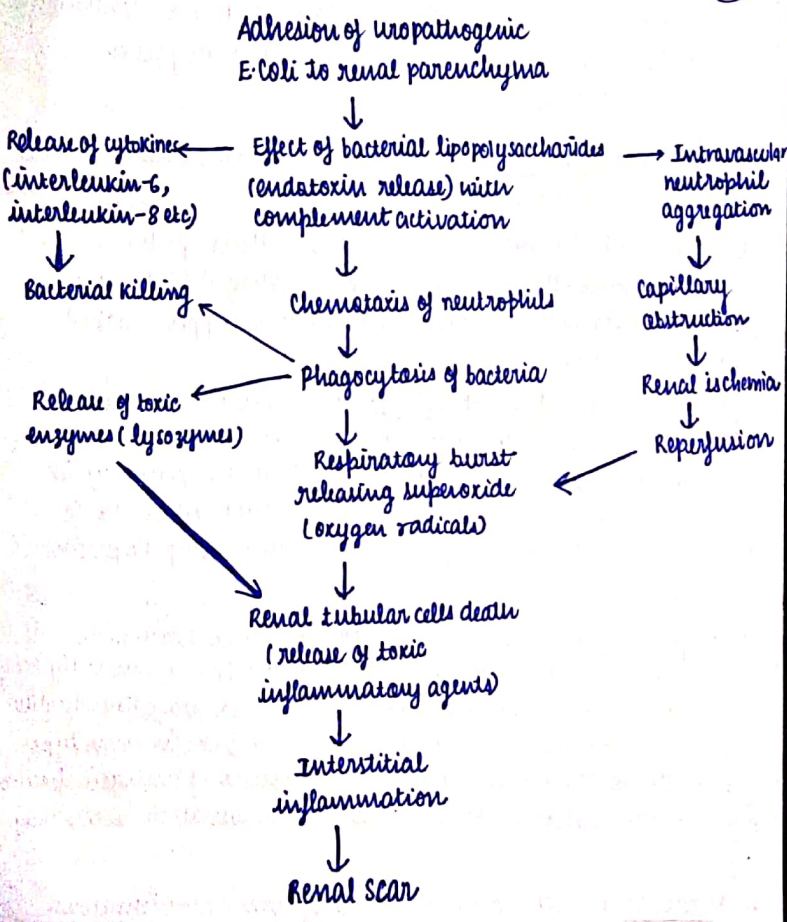 Adhesion of uropathogenic
E·Coli to renal parenchyma
Release of cytokines
(interleukin-6,
interleukin-8 etc)
Effect of bacterial lipopolysaccharides
(endotoxin release) with
complement activation
Intravascular
neutrophil
aggregation
Bacterial killing
Chemotaxis of neutrophils
Capillary
obstruction
Phagocytosis of bacteria
Renal ischemia
Release of toxic
enzymes (lysozymes)
Reperfusion
Respiratory burst
releasing superoxide
(oxygen radicals)
Renal tubular cells death
(release of toxic
inflammatory agents)
Interstitial
inflammation
Renal scar